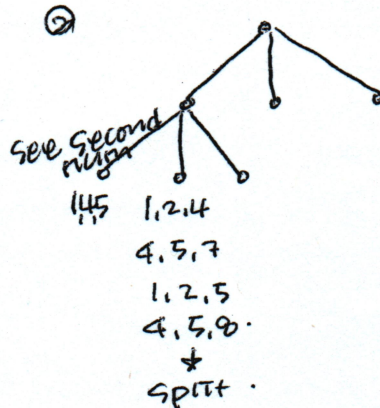 ②
see second
num
1,4,5 1,2,4
4,5,7
1,2,5
4,5,8.
split.